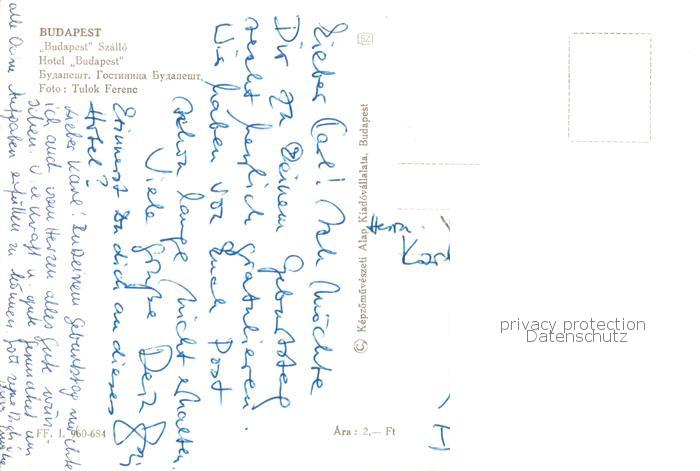 BUDAPEST
„Budapest" Szálló
Hotel „Budapest"
Будапешт. Гостиница Будапешт.
Foto: Tulok Ferenc
SZ
Lieber Karl! Ich möchte
Dir zu Deinem Geburtstag
recht herzlich gratulieren.
Wir haben von Euch Post
schon lange nicht erhalten.
Viele Grüße Dein
Erinnerst Du dich an dieses
Hotel?
Lieber Karel! Zu Deinem Geburtstag möchte
ich auch vom Herzen alles Gute wün-
schen. Viel Kraft u. gute Gesundheit um
alle Deine Aufgaben erfüllen zu können.
© Képzőművészeti Alap Kiadóvállalata, Budapest
Herrn
Karl
privacy protection
Datenschutz
FF. I. 960-684
Ára: 2,— Ft